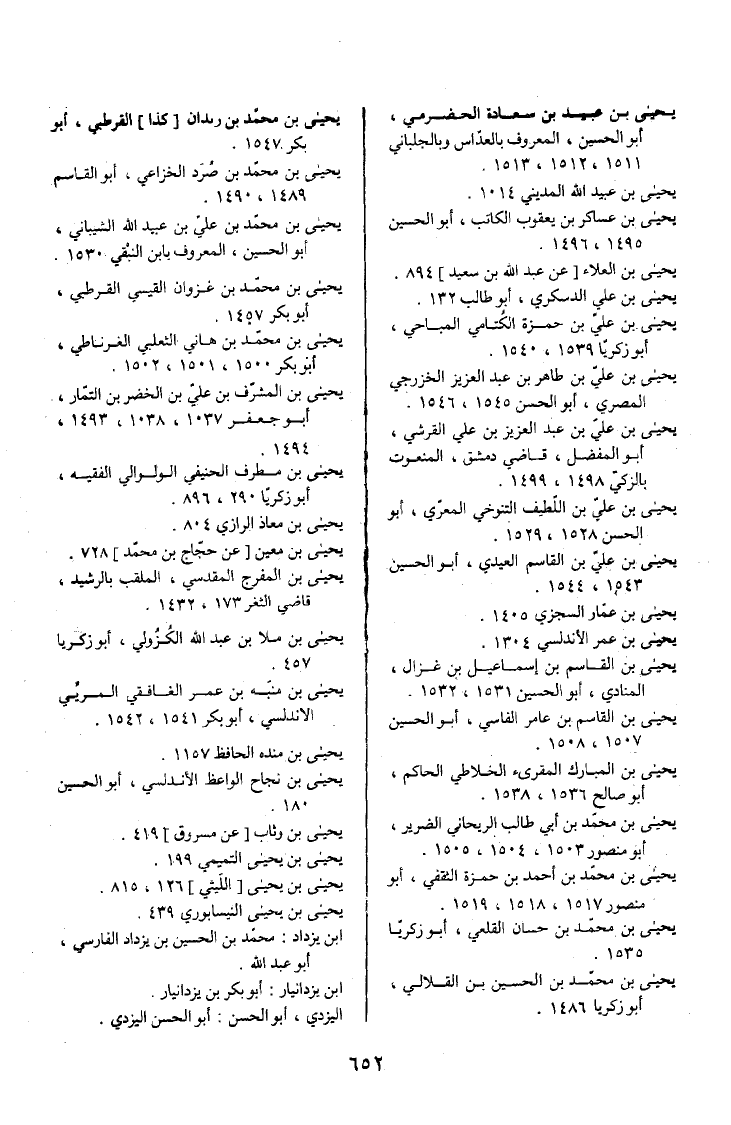 يحيى بن عبيد بن سعادة الحضرمي ،
أبو الحسين ، المعروف بالعدّاس وبالجلباني
١٥١١ ، ١٥١٢ ، ١٥١٣ .
يحيى بن عبيد الله المديني ١٠١٤ .
يحيى بن عساكر بن يعقوب الكاتب ، أبو الحسين
١٤٩٥ ، ١٤٩٦ .
يحيى بن العلاء [ عن عبد الله بن سعيد ] ٨٩٤ .
يحيى بن علي الدسكري ، أبو طالب ١٣٢ .
يحيى بن عليّ بن حمزة الكُتامي المباحي ،
أبو زكريّا ١٥٣٩ ، ١٥٤٠ .
يحيى بن عليّ بن طاهر بن عبد العزيز الخزرجي
المصري ، أبو الحسن ١٥٤٥ ، ١٥٤٦ .
يحيى بن عليّ بن عبد العزيز بن علي القرشي ،
أبو المفضل ، قاضي دمشق ، المنعوت
بالزكيّ ١٤٩٨ ، ١٤٩٩ .
يحيى بن عليّ بن اللّطيف التنوخي المعرّي ، أبو
الحسن ١٥٢٨ ، ١٥٢٩ .
يحيى بن عليّ بن القاسم العيدي ، أبو الحسين
١٥٤٣ ، ١٥٤٤ .
يحيى بن عمّار السجزي ١٤٠٥ .
يحيى بن عمر الأندلسي ١٣٠٤ .
يحيى بن القاسم بن إسماعيل بن غزال ،
المنادي ، أبو الحسين ١٥٣١ ، ١٥٣٢ .
يحيى بن القاسم بن عامر الفاسي ، أبو الحسين
١٥٠٧ ، ١٥٠٨ .
يحيى بن المبارك المقرىء الخلاطي الحاكم ،
أبو صالح ١٥٣٦ ، ١٥٣٨ .
يحيى بن محمّد بن أبي طالب الريحاني الضرير ،
أبو منصور ١٥٠٣ ، ١٥٠٤ ، ١٥٠٥ .
يحيى بن محمّد بن أحمد بن حمزة الثقفي ، أبو
منصور ١٥١٧ ، ١٥١٨ ، ١٥١٩ .
يحيى بن محمّد بن حسان القلعي ، أبو زكريّا
١٥٣٥ .
يحيى بن محمّد بن الحسين بن القلالي ،
أبو زكريا ١٤٨٦ .
يحيى بن محمّد بن ربدان [ كذا ] القرطبي ، أبو
بكر ١٥٤٧ .
يحيى بن محمّد بن صُرَد الخزاعي ، أبو القاسم
١٤٨٩ ، ١٤٩٠ .
يحيى بن محمد بن عليّ بن عبيد الله الشيباني ،
أبو الحسين ، المعروف بابن النبْقي ١٥٣٠ .
يحيى بن محمّد بن غزوان القيسي القرطبي ،
أبو بكر ١٤٥٧ .
يحيى بن محمّد بن هاني الثعلبي الغرناطي ،
أبو بكر ١٥٠٠ ، ١٥٠١ ، ١٥٠٢ .
يحيى بن المشرّف بن عليّ بن الخضر بن التمّار ،
أبو جعفر ١٠٣٧ ، ١٠٣٨ ، ١٤٩٣ ،
١٤٩٤ .
يحيى بن مطرف الحنيفي الولوالي الفقيه ،
أبو زكريّا ٢٩٠ ، ٨٩٦ .
يحيى بن معاذ الرازي ٨٠٤ .
يحيى بن معين [ عن حجّاج بن محمّد ] ٧٢٨ .
يحيى بن المفرج المقدسي ، الملقب بالرشيد ،
قاضي الثغر ١٧٣ ، ١٤٣٢ .
يحيى بن ملا بن عبد الله الكُزُولي ، أبو زكريا
٤٥٧ .
يحيى بن منبّه بن عمر الغافقي المريّي
الاندلسي ، أبو بكر ١٥٤١ ، ١٥٤٢ .
يحيى بن منده الحافظ ١١٥٧ .
يحيى بن نجاح الواعظ الأندلسي ، أبو الحسين
١٨٠ .
يحيى بن وثاب [ عن مسروق ] ٤١٩ .
يحيى بن يحيى التميمي ١٩٩ .
يحيى بن يحيى [ اللّيثي ] ١٢٦ ، ٨١٥ .
يحيى بن يحيى النيسابوري ٤٣٩ .
ابن يزداد : محمّد بن الحسين بن يزداد الفارسي ،
أبو عبد الله .
ابن يزدانيار : أبو بكر بن يزدانيار .
اليزدي ، أبو الحسن : أبو الحسن اليزدي .
٦٥٢